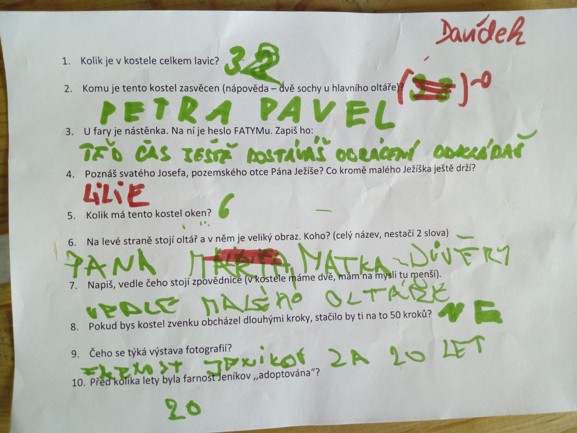 Davídek
1. Kolik je v kostele celkem lavic? 32
2. Komu je tento kostel zasvěcen (nápověda – dvě sochy u hlavního oltáře)?
PETRA PAVEL
3. U fary je nástěnka. Na ní je heslo FATYMu. Zapiš ho:
TEĎ ČAS JEŠTĚ DOSTÁVÁŠ OBRÁCENÍ ODKLÁDÁŠ
4. Poznáš svatého Josefa, pozemského otce Pána Ježíše? Co kromě malého Ježíška ještě drží?
LILIE
5. Kolik má tento kostel oken? 6
6. Na levé straně stojí oltář a v něm je veliký obraz. Koho? (celý název, nestačí 2 slova)
PANA MATKA DŮVĚRY
7. Napiš, vedle čeho stojí zpovědnice (v kostele máme dvě, mám na mysli tu menší).
VEDLE MALÉHO OLTÁŘE
8. Pokud bys kostel zvenku obcházel dlouhými kroky, stačilo by ti na to 50 kroků? NE
9. Čeho se týká výstava fotografií?
JENIKOF ZA 20 LET
10. Před kolika lety byla farnost Jeníkov „adoptována"?
20